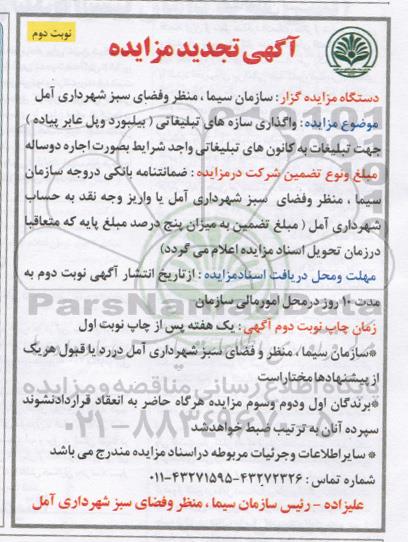 نوبت دوم
آگهی تجدید مزایده
دستگاه مزایده گزار : سازمان سیما ، منظر وفضای سبز شهرداری آمل
موضوع مزایده : واگذاری سازه های تبلیغاتی ( بیلبورد وپل عابر پیاده )
جهت تبلیغات به کانون های تبلیغاتی واجد شرایط بصورت اجاره دوساله
مبلغ ونوع تضمین شرکت درمزایده : ضمانتنامه بانکی دروجه سازمان
سیما ، منظر وفضای سبز شهرداری آمل یا واریز وجه نقد به حساب
شهرداری آمل ( مبلغ تضمین به میزان پنج درصد مبلغ پایه که متعاقبا
درزمان تحویل اسناد مزایده اعلام می گردد)
مهلت ومحل دریافت اسنادمزایده : ازتاریخ انتشار آگهی نوبت دوم به
مدت ۱۰ روز درمحل امورمالی سازمان
زمان چاپ نوبت دوم آگهی : یک هفته پس از چاپ نوبت اول
*سازمان سیما ، منظر و فضای سبز شهرداری آمل دررد یا قبول هریک
از پیشنهادها مختاراست
*برندگان اول ودوم وسوم مزایده هرگاه حاضر به انعقاد قراردادنشوند
سپرده آنان به ترتیب ضبط خواهدشد
* سایراطلاعات وجزئیات مربوطه دراسناد مزایده مندرج می باشد
شماره تماس : ۴۳۲۷۲۳۲۶-۰۱۱-۴۳۲۷۱۵۹۵
علیزاده - رئیس سازمان سیما ، منظر وفضای سبز شهرداری آمل
ParsNamadData
پایگاه اطلاع رسانی مناقصه و مزایده
۰۲۱-۸۸۳۴۹۶۷۰-۵